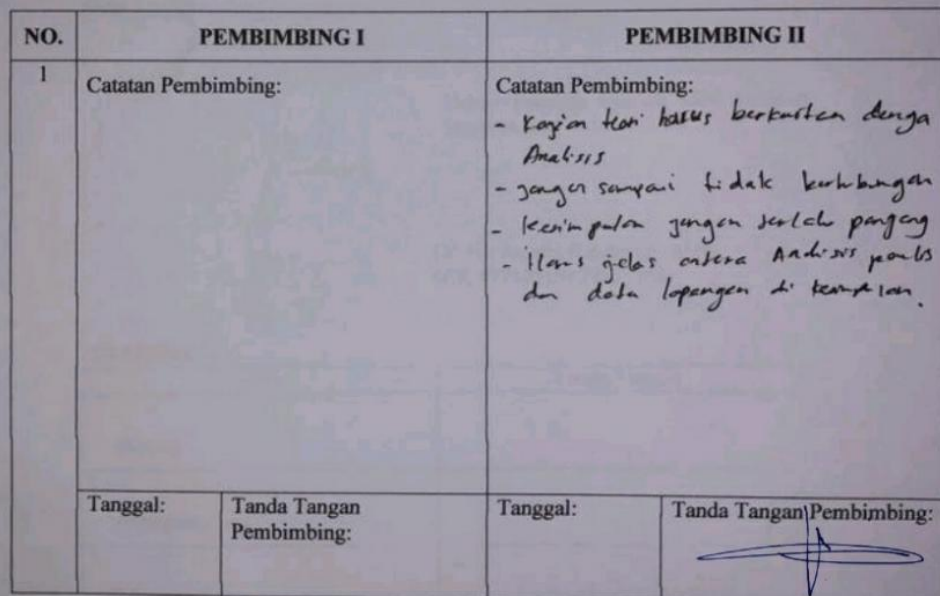 NO. PEMBIMBING I PEMBIMBING II
1 Catatan Pembimbing: Catatan Pembimbing:
- Kajian teori harus berkaitan denga
Analisis
- jangan sampai tidak berhubungan
- kesimpulan jangan terlalu panjang
- Harus jelas antara Analisis penulis
dan data lapangan di
Tanggal: Tanda Tangan Tanggal: Tanda Tangan Pembimbing:
Pembimbing: